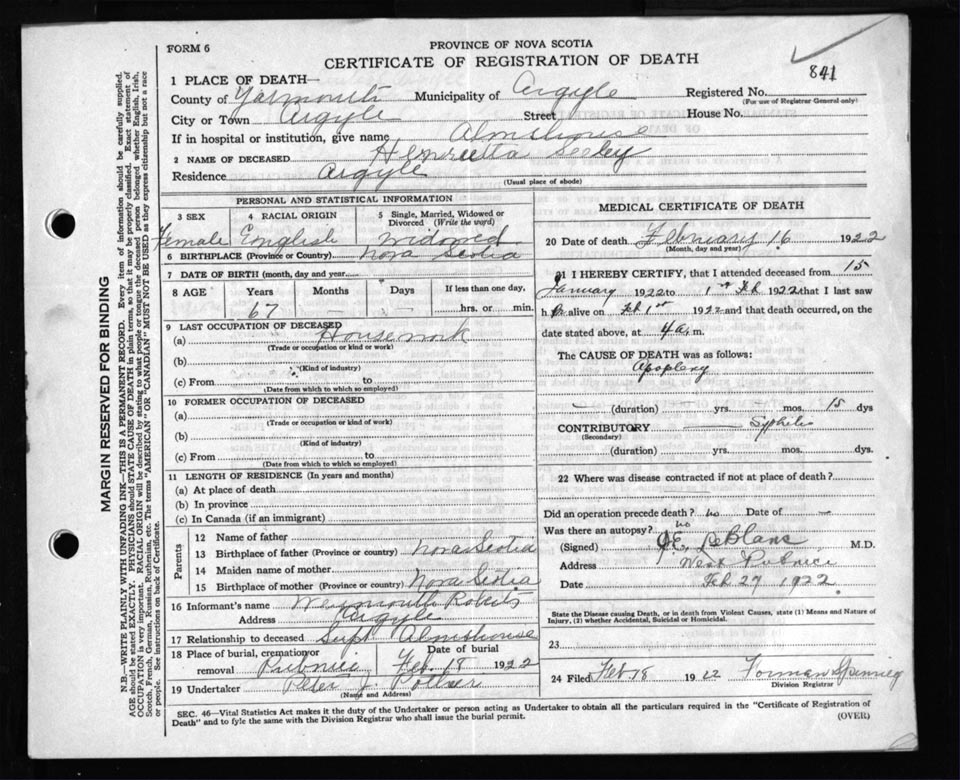 FORM 6
PROVINCE OF NOVA SCOTIA
CERTIFICATE OF REGISTRATION OF DEATH
841
1 PLACE OF DEATH—
County of Yarmouth Municipality of Argyle Registered No.
(For use of Registrar General only)
City or Town Argyle Street House No.
If in hospital or institution, give name Almshouse
2 NAME OF DECEASED Henrietta Seeley
Residence Argyle
(Usual place of abode)
MARGIN RESERVED FOR BINDING
N.B.—WRITE PLAINLY WITH UNFADING INK—THIS IS A PERMANENT RECORD. Every item of information should be carefully supplied.
AGE should be stated EXACTLY. PHYSICIANS should STATE CAUSE OF DEATH in plain terms, so that it may be properly classified. Exact statement of
OCCUPATION is very important. RACIAL ORIGIN will be described by stating to what people or tongue the deceased person belonged whether English, Irish,
Scotch, French, German, Russian, Ruthenian, etc. The terms "AMERICAN" OR "CANADIAN" MUST NOT BE USED as they express citizenship but not a race
or people. See instructions on back of Certificate.
PERSONAL AND STATISTICAL INFORMATION
3 SEX 4 RACIAL ORIGIN 5 Single, Married, Widowed or
Divorced (Write the word)
Female English Widowed
6 BIRTHPLACE (Province or Country) Nova Scotia
7 DATE OF BIRTH (month, day and year)
8 AGE Years Months Days If less than one day,
67 — — hrs. or min.
9 LAST OCCUPATION OF DECEASED
(a) Housework
(Trade or occupation or kind or work)
(b)
(Kind of industry)
(c) From to
(Date from which to which so employed)
10 FORMER OCCUPATION OF DECEASED
(a)
(b)
(Kind of industry)
(c) From to
(Date from which to which so employed)
11 LENGTH OF RESIDENCE (In years and months)
(a) At place of death
(b) In province
(c) In Canada (if an immigrant)
Parents
12 Name of father
13 Birthplace of father (Province or country) Nova Scotia
14 Maiden name of mother
15 Birthplace of mother (Province or country) Nova Scotia
16 Informant's name Weymouth Roberts
Address Argyle
17 Relationship to deceased Supt Almshouse
18 Place of burial, cremation or removal Pubnico Date of burial Feb. 18 1922
19 Undertaker Peter J.
(Name and Address)
MEDICAL CERTIFICATE OF DEATH
20 Date of death February 16 1922
(Month, day and year)
21 I HEREBY CERTIFY, that I attended deceased from 15
January 1922 to 1st Feb 1922 that I last saw
h er alive on Feb 1st 1922 and that death occurred, on the
date stated above, at 4 a m.
The CAUSE OF DEATH was as follows:
Apoplexy
— (duration) yrs. — mos. 15 dys
CONTRIBUTORY — Syphilis
(Secondary)
(duration) yrs. mos. dys.
22 Where was disease contracted if not at place of death?
Did an operation precede death? no Date of —
Was there an autopsy? no
(Signed) J.E. LeBlanc M.D.
Address West Pubnico
Date Feb 27 1922
State the Disease causing Death, or in death from Violent Causes, state (1) Means and Nature of
Injury, (2) whether Accidental, Suicidal or Homicidal.
23
24 Filed Feb 18 1922 Forman
Division Registrar
SEC. 46—Vital Statistics Act makes it the duty of the Undertaker or person acting as Undertaker to obtain all the particulars required in the "Certificate of Registration of
Death" and to fyle the same with the Division Registrar who shall issue the burial permit.
(OVER)